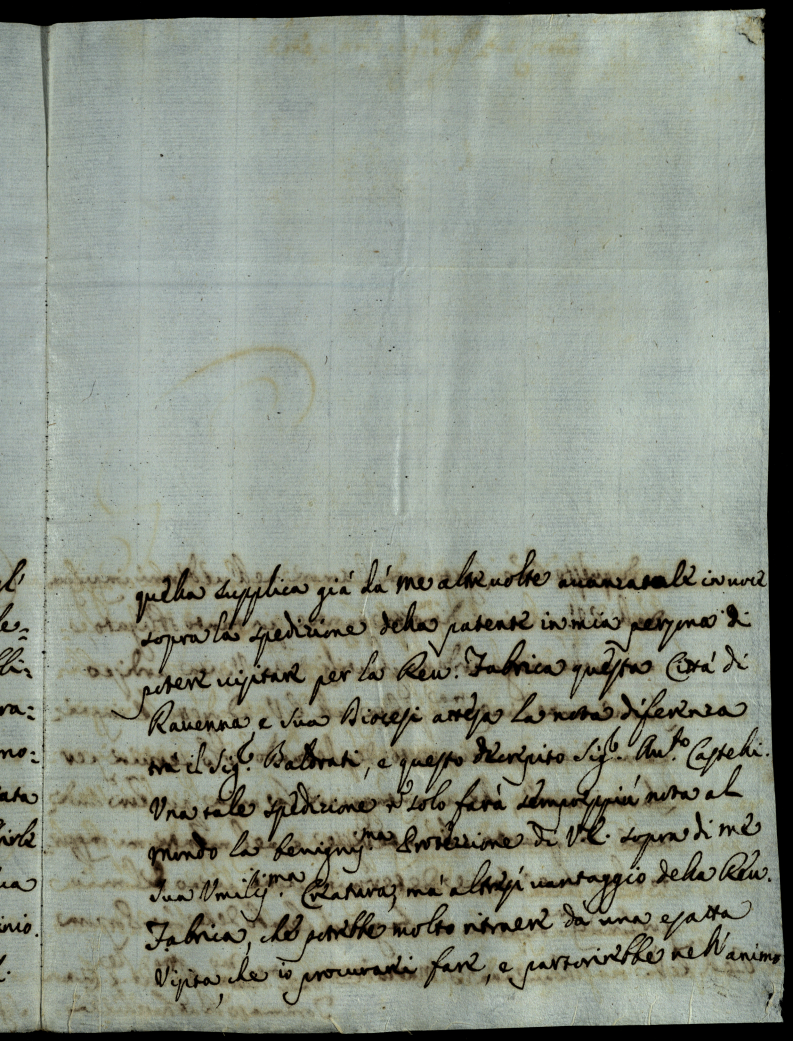 quella supplica già dà me altre volte avanzatale in voce
sopra la spedizione della patente in mia persona di
potere visitare per la Rev: Fabrica questa Città di
Ravenna, e sua Diocesi attesa la nota diferenza
trà il Sig.r Baldrati, e questo decrepito Sig.r Ant.o Castelli.
Una tale spedizione ñ solo farà sempreppiù nota al
mondo la benignis.ma Protezione di V.E. sopra di me
sua Umilis.ma Creatura, mà altresì vantaggio della Rev.
Fabrica, che potrebbe molto ritraere da una esatta
Visita, che io procurarei fare, e partorirebbe nell'animo